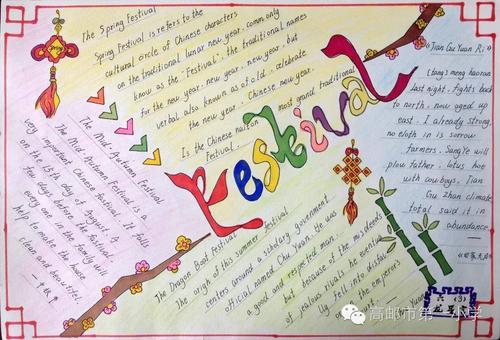 The Spring Festival
Spring Festival is refers to the
cultural circle of Chinese characters
on the traditional lunar new year, commonly
know as the "Festival", the traditional names
for the new year, new year, new year, but
verbal also known as of old, celebrate
the new year, Chinese new year.
Is the Chinese nation most grand traditional
Festival.
Festival
The Mid-Autumn Festival
The Mid Autumn Festival is a
very important Chinese festival. It falls
on the 15th day of August. A
few days before the festival
every one in the family will
help to make the house
clean and beautiful
—中秋节
The Dragon Boat Festival
The origin of this summer festival
centers around a scholarly government
official named Chu Yuan. He was
a good and respected man,
but because of the misdeeds
of jealous rivals he eventua
lly fell into disfav
the emperor's
《Tian Cu Yuan Ri》
(tang) meng haoran
last night, fights back
to north, now aged up
east. I already strong
no cloth in is sorrow
farmers. SangYe will
plow father, lotus hoe
with cowboys, Tian
Gu zhan climate
total said it in
abundance.
六(3)
高邮市第一小学